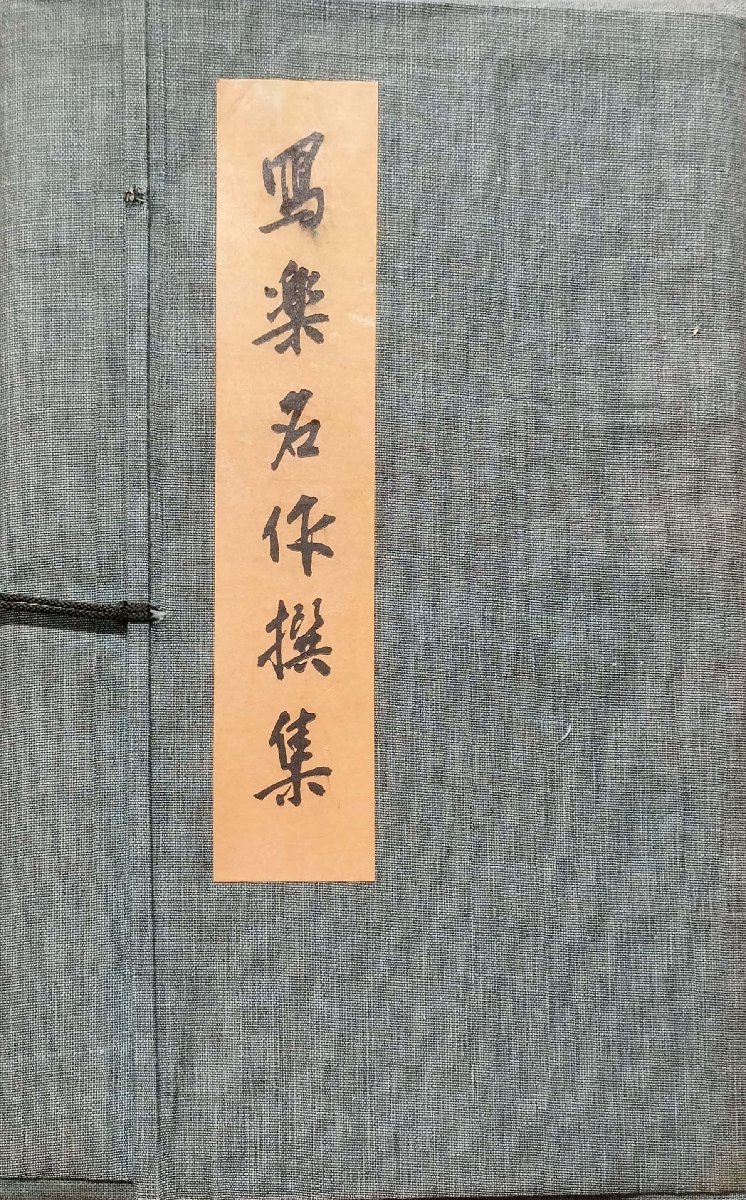 寫楽名作撰集